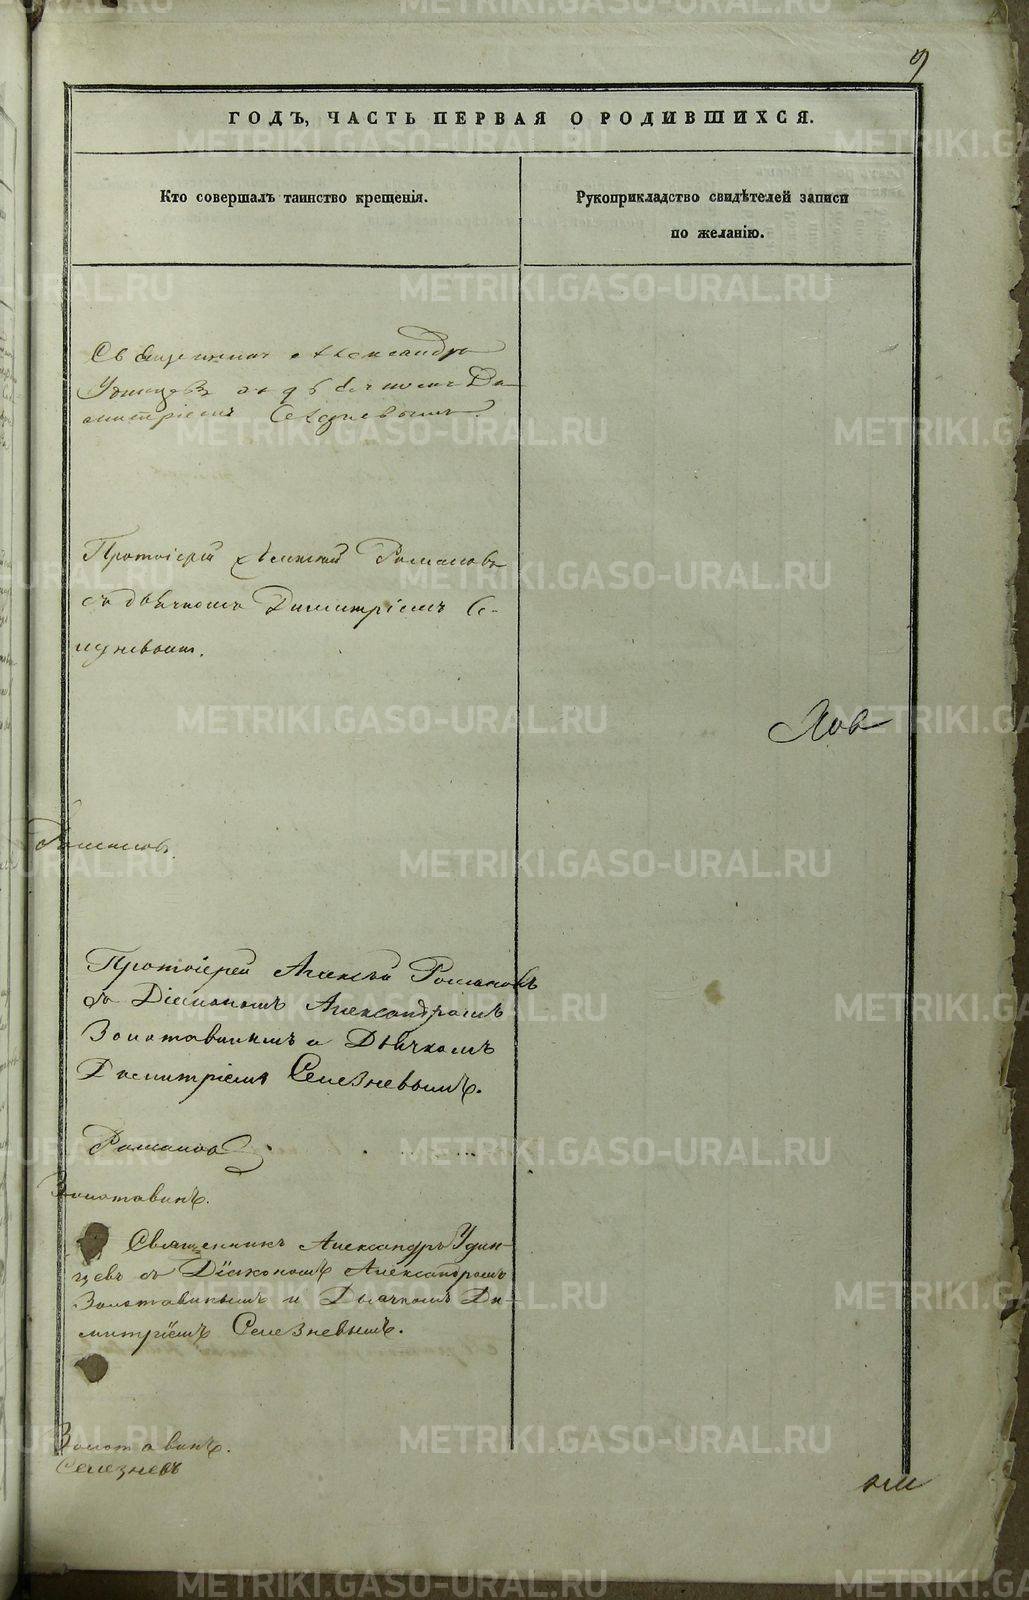 9
ГОДЪ, ЧАСТЬ ПЕРВАЯ О РОДИВШИХСЯ.
Кто совершалъ таинство крещенія.
Рукоприкладство свидѣтелей записи
по желанію.
Священникъ Александръ
Удинцовъ съ дьячкомъ Ди-
митріемъ
Протоіерей Алексѣй Романовъ
съ дьячкомъ Димитріемъ Се-
лезневымъ.
Романовъ.
Протоіерей Алексѣй Романовъ
съ Діакономъ Александромъ
Золотавинымъ и Дьячкомъ
Димитріемъ Селезневымъ.
Романовъ
Золотавинъ.
Священникъ Александръ Удин-
цевъ съ Діакономъ Александромъ
Золотавинымъ и Дьячкомъ Ди-
митріемъ Селезневымъ.
Золотавинъ.
Селезневъ
METRIKI.GASO-URAL.RU